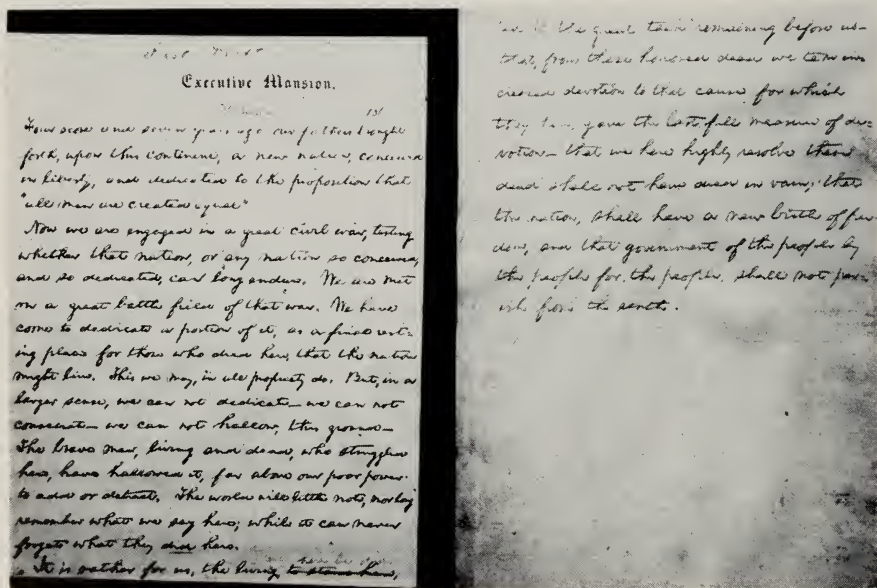 Executive Mansion,
Four score and seven years ago our fathers brought
forth, upon this continent, a new nation, conceived
in liberty, and dedicated to the proposition that
"all men are created equal"
Now we are engaged in a great civil war, testing
whether that nation, or any nation so conceived,
and so dedicated, can long endure. We are met
on a great battle field of that war. We have
come to dedicate a portion of it, as a final rest-
ing place for those who died here, that the nation
might live. This we may, in all propriety do. But, in a
larger sense, we can not dedicate — we can not
consecrate — we can not hallow, this ground —
The brave men, living and dead, who struggled
here, have hallowed it, far above our poor power
to add or detract. The world will little note, nor long
remember what we say here; while it can never
forget what they did here.
It is rather for us, the living to stand here,
the great task remaining before us —
that, from these honored dead we take in-
creased devotion to that cause for which
they here, gave the last full measure of de-
votion — that we here highly resolve these
dead shall not have died in vain; that
the nation, shall have a new birth of free-
dom, and that government of the people by
the people for the people, shall not per-
ish from the earth.